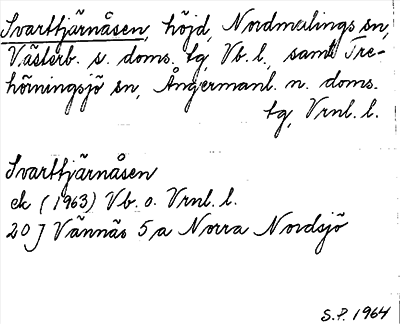 Svarttjärnåsen, höjd, Nordmalings sn,
Västerb. s. doms. tg, Vb. l., samt Tre-
hörningsjö sn, Ångermanl. n. doms.
tg, Vrnl. l.
Svarttjärnåsen
ek (1963) Vb. o. Vrnl. l.
20 J Vännäs 5 a Norra Nordsjö
S.P. 1964